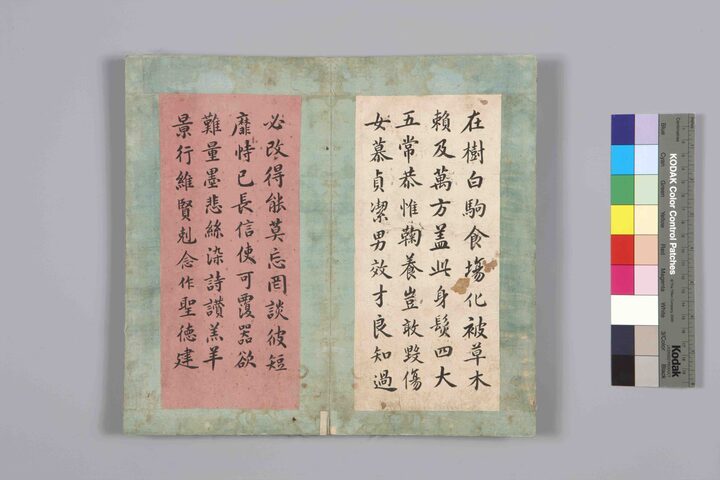 在樹白駒食塲化被草木
賴及萬方蓋此身髮四大
五常恭惟鞠養豈敢毀傷
女慕貞潔男效才良知過
必改得能莫忘罔談彼短
靡恃己長信使可覆器欲
難量墨悲絲染詩讚羔羊
景行維賢剋念作聖德建
KODAK Color Control Patches
Kodak
Blue
Cyan
Green
Yellow
Red
Magenta
White
3/Color
Black
Centimetres